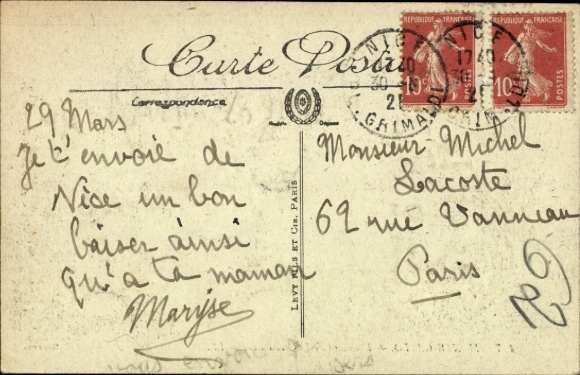 Carte Postale
Correspondance
29 Mars
Je t'envoie de
Nice un bon
baiser ainsi
qu'à ta maman
Maryse
LEVY FILS ET Cie, PARIS
REPUBLIQUE FRANÇAISE
POSTES
REPUBLIQUE FRANÇAISE
10c
POSTES
NICE
GRIMALDI
NICE
17 40
Monsieur Michel
Lacoste
62 rue Vanneau
Paris